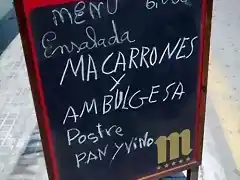 MENU 6,00€
Ensalada
MACARRONES
Y
AMBULGESA
Postre
PAN y VINO
m